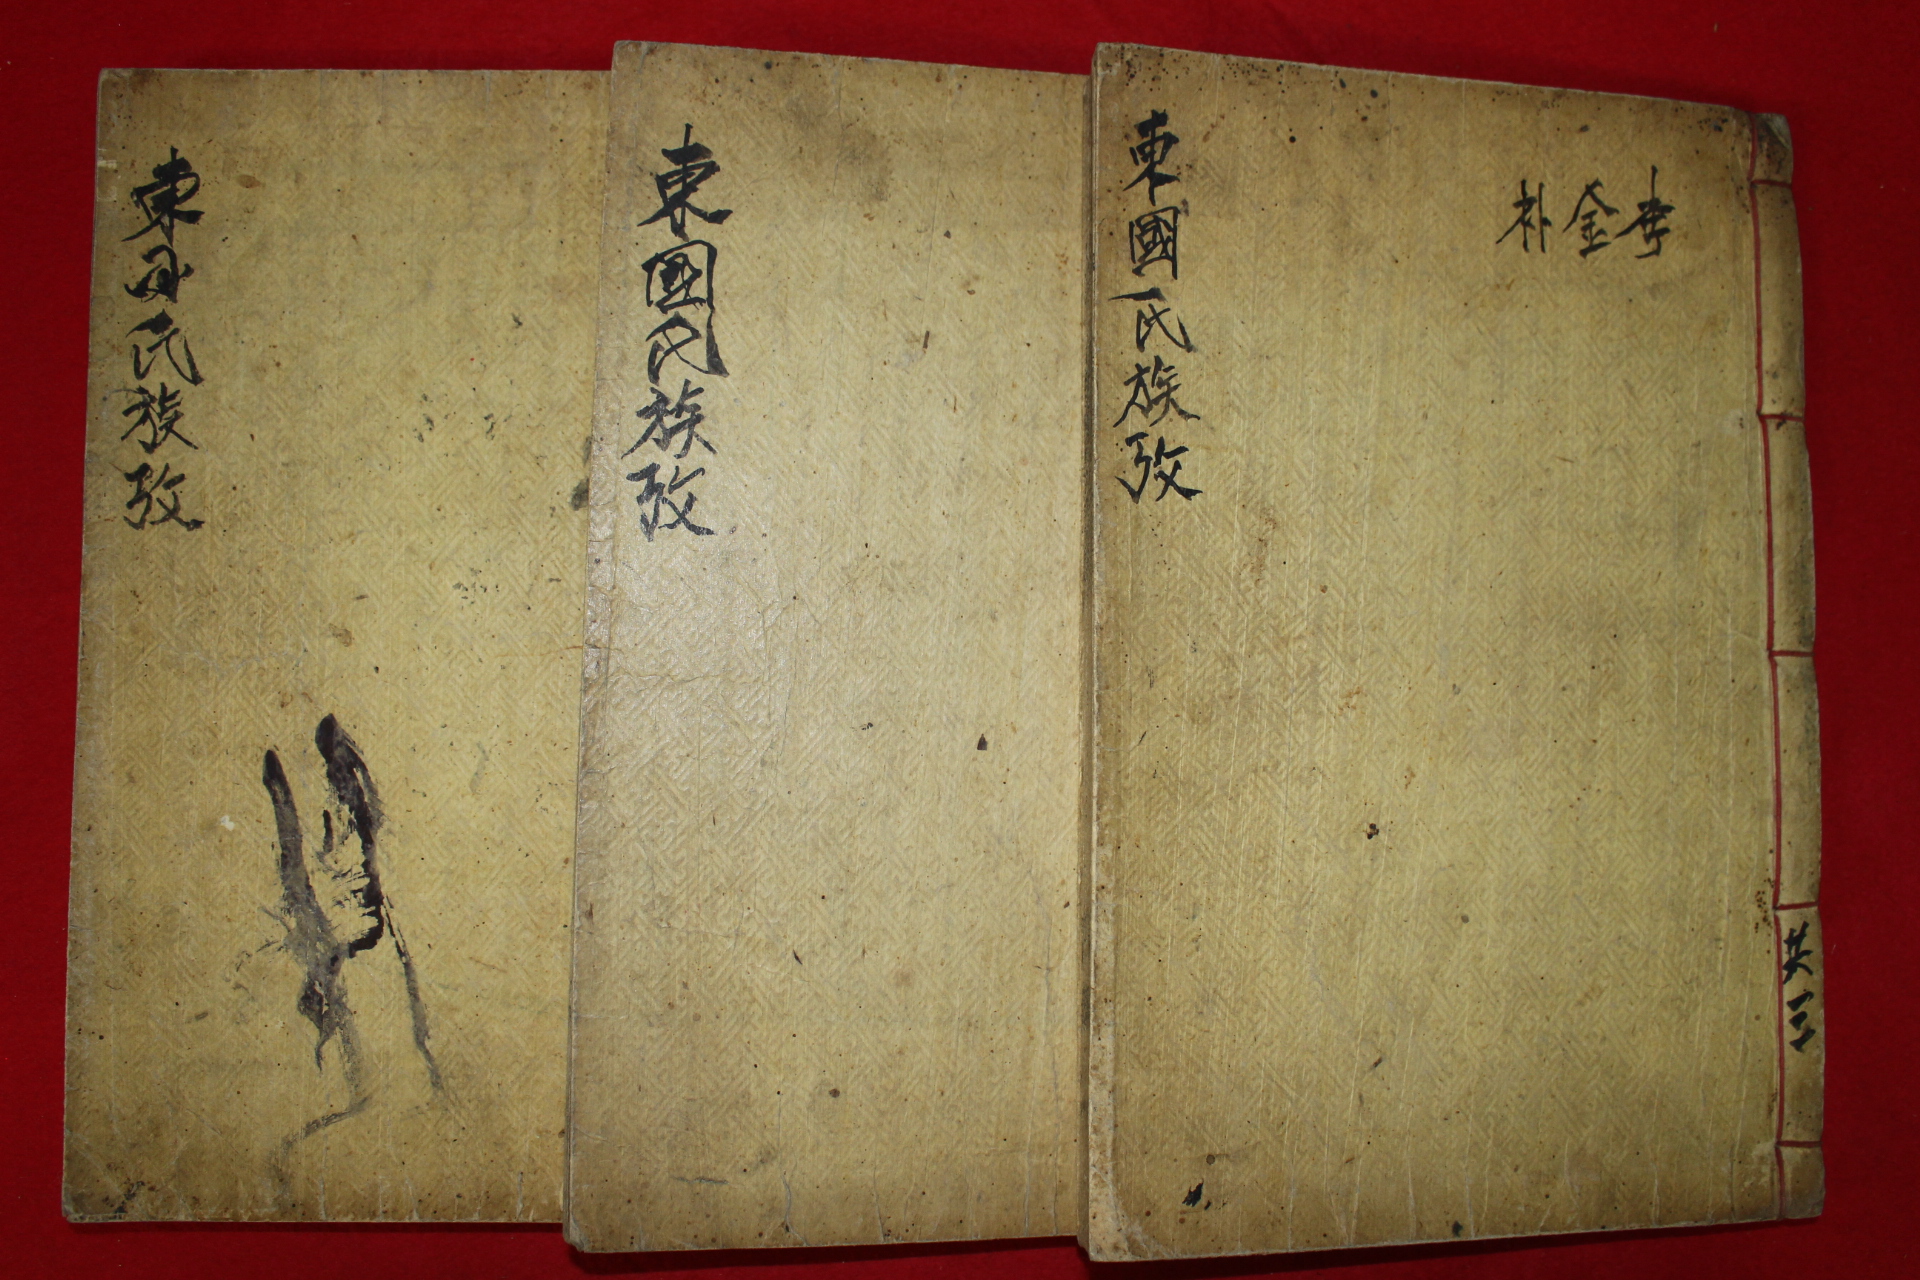 共三
李金朴
東國氏族攷
東國氏族攷
東国氏族攷